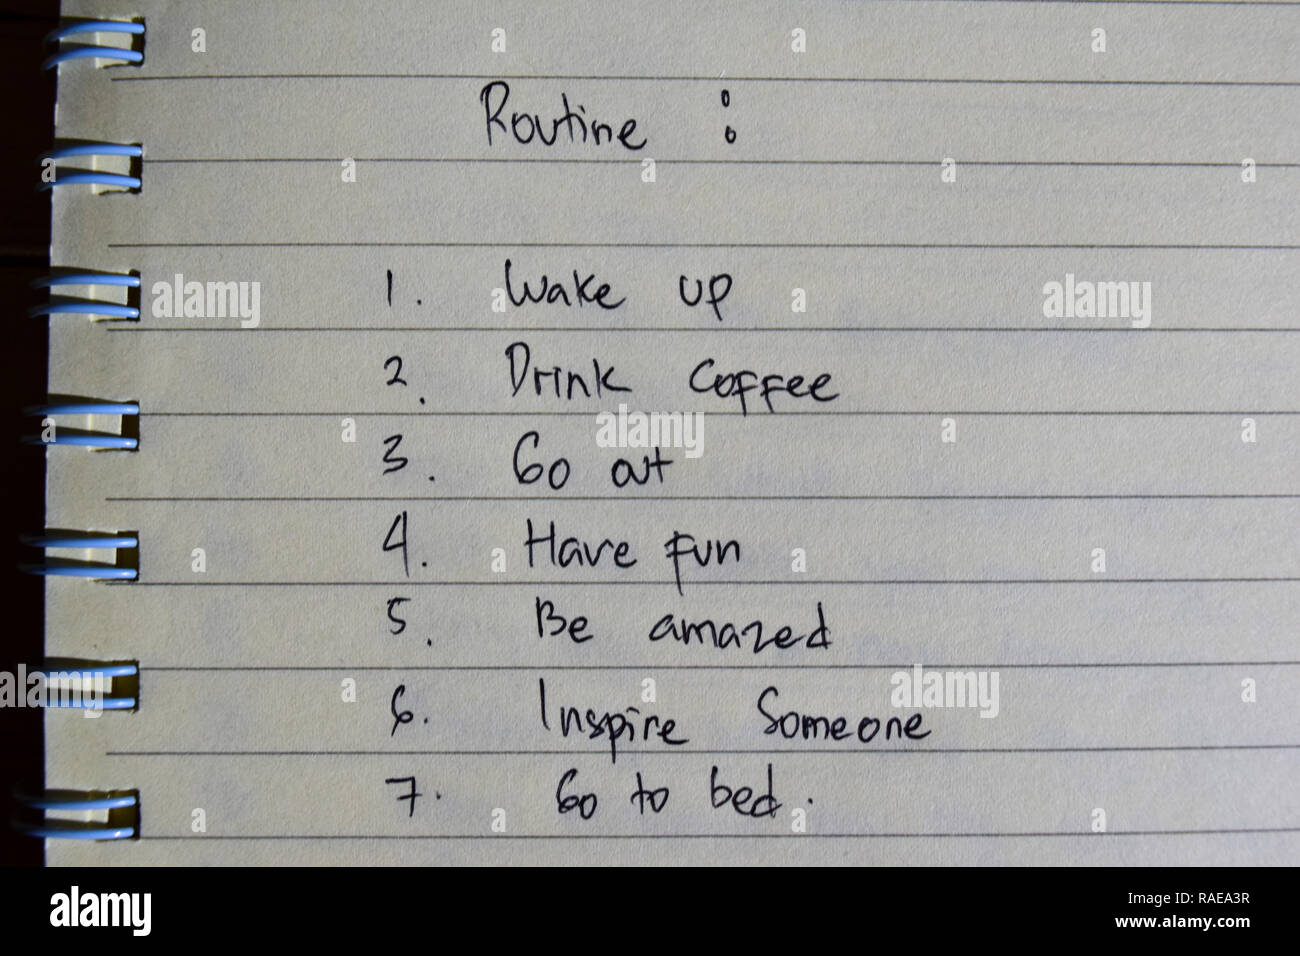 Routine :
1. Wake up
2. Drink coffee
3. Go out
4. Have fun
5. Be amazed
6. Inspire Someone
7. Go to bed.
alamy
alamy
alamy
alamy
alamy
alamy
Image ID: RAEA3R
www.alamy.com